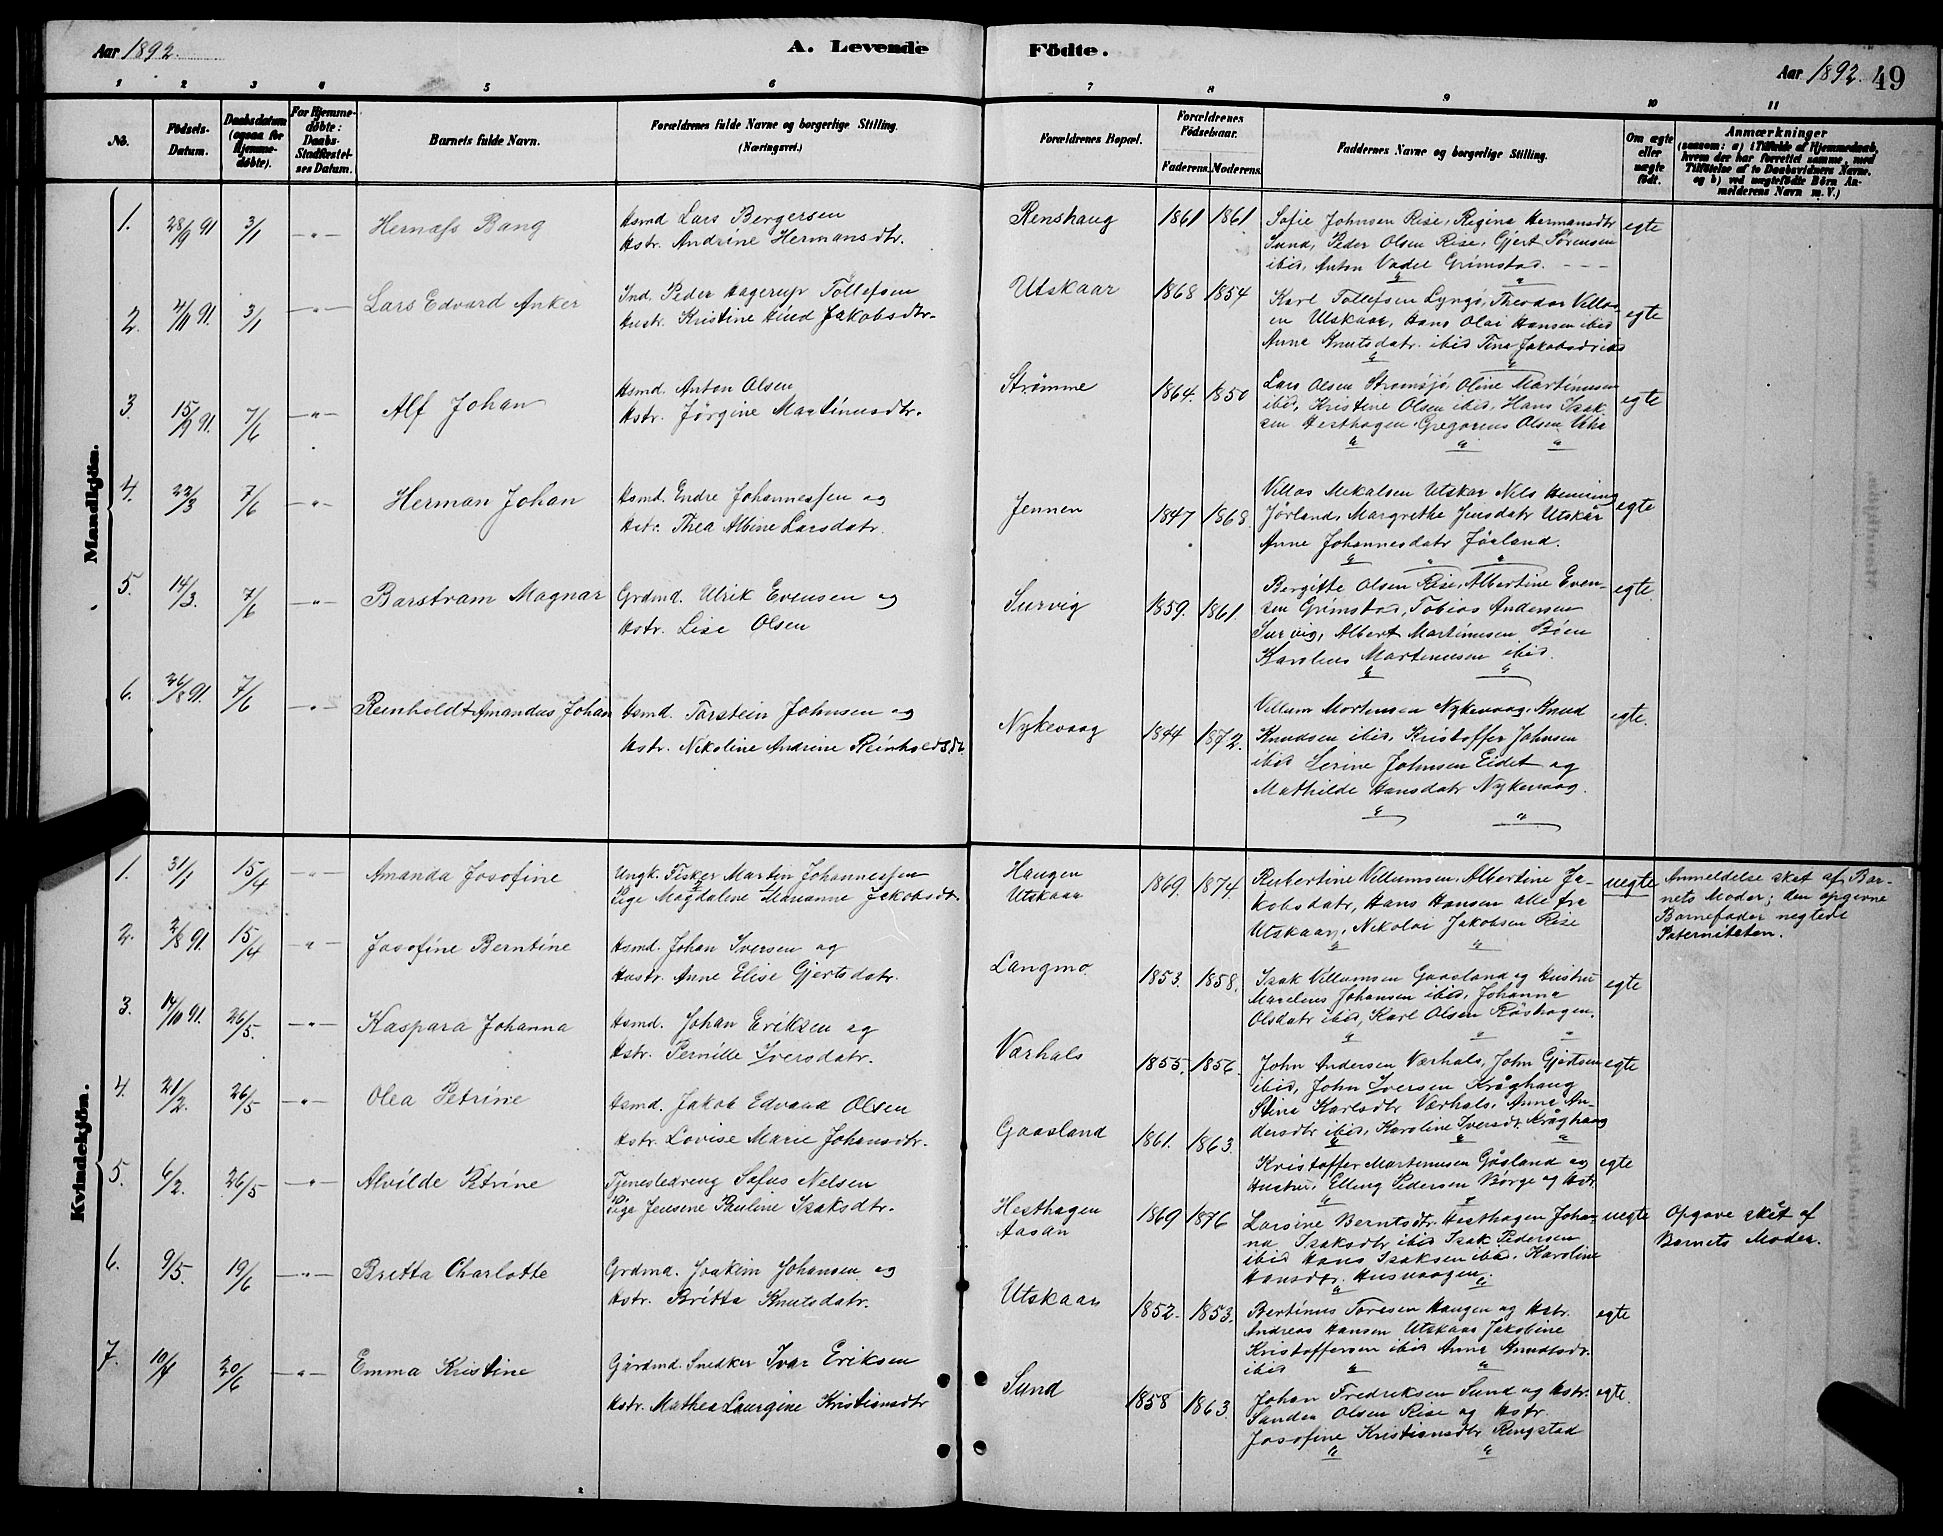 Aar 1892. A. Levende Födte. Aar 1892. 49
1 2 3 4 5 6 7 8 9 10 11
No.
Födsels-Datum.
Daabsdatum (ogsaa for Hjemmedøbte).
For Hjemmedøbte: Daabs-Stadfæstelses Datum.
Barnets fulde Navn.
Forældrenes fulde Navne og borgerlige Stilling.
(Næringsvei.)
Forældrenes Bopæl.
Forældrenes Födselsaar.
Faderens. Moderens.
Faddernes Navne og borgerlige Stilling.
Om ægte eller uægte født.
Anmærkninger
(saasom: a) i Tilfælde af Hjemmedaab, hvem der har forrettet samme, med Tilföielse af to Daabsvidners Navne, og b) ved uægtefødte Börn Anmelderens Navn m. V.)
Mandkjön.
1. 28/9 91 3/1 —"— Hernæss Bang
Hsmd Lars Bergersen
Hstr. Andrine Hermansdtr.
Renshaug 1861 1861.
Sofie Johnsen Rise, Regine Hermansdtr
Sund, Peder Olsen Rise, Gjert Sørensen
ibid, Anton Vadel Grimstad. - - -
egte
2. 4/11 91. 3/1 —"— Lars Edvard Anker
Ind. Peder Hagerup Tollefsen
Hustr. Kristine Hind Jakobsdtr.
Utskaar 1868 1854
Karl Tollefsen Lyngø, Theodor Villas-
en Utskaar, Hans Olai Hansen ibid
Anne Knutsdatr. ibid Tina Jakobsdr ibid
egte
3. 15/9 91. 7/6 —"— Alf Johan
Hsmd. Anton Olsen
Hstr. Jörgine Martinusdtr.
Strømme 1864. 1850
Lars Olsen Stromsjö, Oline Martinusen
ibid, Kristine Olsen ibid, Hans Isak-
sen Hesthagen, Gregorius Olsen
egte
4. 22/3 7/6 —"— Herman Johan
Hsmd. Endre Johannessen og
Hstr. Thea Albine Larsdatr.
Jennen 1847 1868.
Villas Mekalsen Utskar Nils Henning
Jörland, Margrethe Jensdatr Utskår
Anne Johannesdatr Jøsland.
egte
5. 14/3. 7/6 —"— Barstram Magnar
Grdmd. Ulrik Evensen og
Hstr. Lise Olsen
Survig 1859. 1861.
Bergitte Olsen Rise, Albertine Even-
sen Grimstad, Tobias Andersen
Survig, Albert Martinusen Böen
Karolius Martinusen ibid.
egte
6. 26/8 91. 7/6 —"— Reinholdt Amandus Johan
Hsmd. Torstein Johnsen og
Hstr. Nikoline Andrine Reinholdsdr.
Nykevaag 1844 1872.
Villum Mortensen Nykevaag, Knud
Knudsen ibid, Kristoffer Johnsen
ibid Serine Johnsen Eidet og
Mathilde Hansdatr Nykevaag.
egte.
Kvindekjön.
1. 31/1 15/4 —"— Amanda Josofine
Ungk. Fisker Martin Johannessen
Pige Magdalene Marianne Jakobsdtr
Haugen
Utskaar 1869. 1874.
Rubertine Villumsen, Albertine Ja-
kobsdatr, Hans Hansen alle fra
Utskaar, Nikolai Jakobsen Rise
uegte
Anmeldelse sket af Bar-
nets Moder; den opgivne
Barnefader negtede
Paterniteten.
2. 2/8 91. 15/4 " Josofine Berntine
Hsmd. Johan Iversen og
Hustr. Anne Elise Gjertsdatr.
Langmo 1853. 1858.
Isak Villumsen Gaasland og Hustru
Marelius Johansen ibid, Johanna
Olsdatr ibid, Karl Olsen Röshagen.
egte
3. 14/10 91. 26/5. —"— Kaspara Johanna
Hsmd. Johan Eriksen og
Hstr. Pernille Iversdatr.
Værhals 1855. 1856.
John Andersen Værhals, John Gjertsen
ibid, John Iversen Kråghaug
Stina Karlsdtr Værhals, Anna An-
dersdtr ibid, Karoline Iversdr. Kråghaug
egte
4. 21/2. 26/5 —"— Olea Petrine
Hsmd. Jakob Edvard Olsen
Hstr. Lovise Marie Johansdtr.
Gaasland 1861. 1863.
Kristoffer Martinusen Gåsland og
Hustru, Elling Pedersen Børge og Hstr.
egte
5. 6/2. 26/5 —"— Alvilde Petrine
Tjenestedreng Sofus Nelsen
Pige Jensene Pauline Isaksdtr.
Hesthagen
Aasan 1869 1876
Larsine Berntsdtr. Hesthagen Johan-
na Isaksdtr ibid Isak Pedersen
ibid Hans Isaksen ibid. Karoline
Hansdtr. Husvaagen.
uegte
Opgave sket af
Barnets Moder.
6. 9/5. 19/6 —"— Britta Charlotte
Grdmd. Joakim Johansen og
Hstr. Britta Knutsdatr.
Utskaar 1852. 1853.
Bertinus Toresen Haugen og Hstr.
Andreas Hansen Utskaar Jakobine
Kristoffersen ibid Anna Knudtsdr.
ibid
egte
7. 10/4 20/6 —"— Emma Kristine
Gårdmd. Snedker Ivar Eriksen
Hstr. Mathea Laurgine Kristiansdtr
Sund 1858 1863.
Johan Fredriksen Sund og Hstr.
Sander Olsen Rise og Hstr
Josofine Kristiansdtr Ringstad
egte.
2